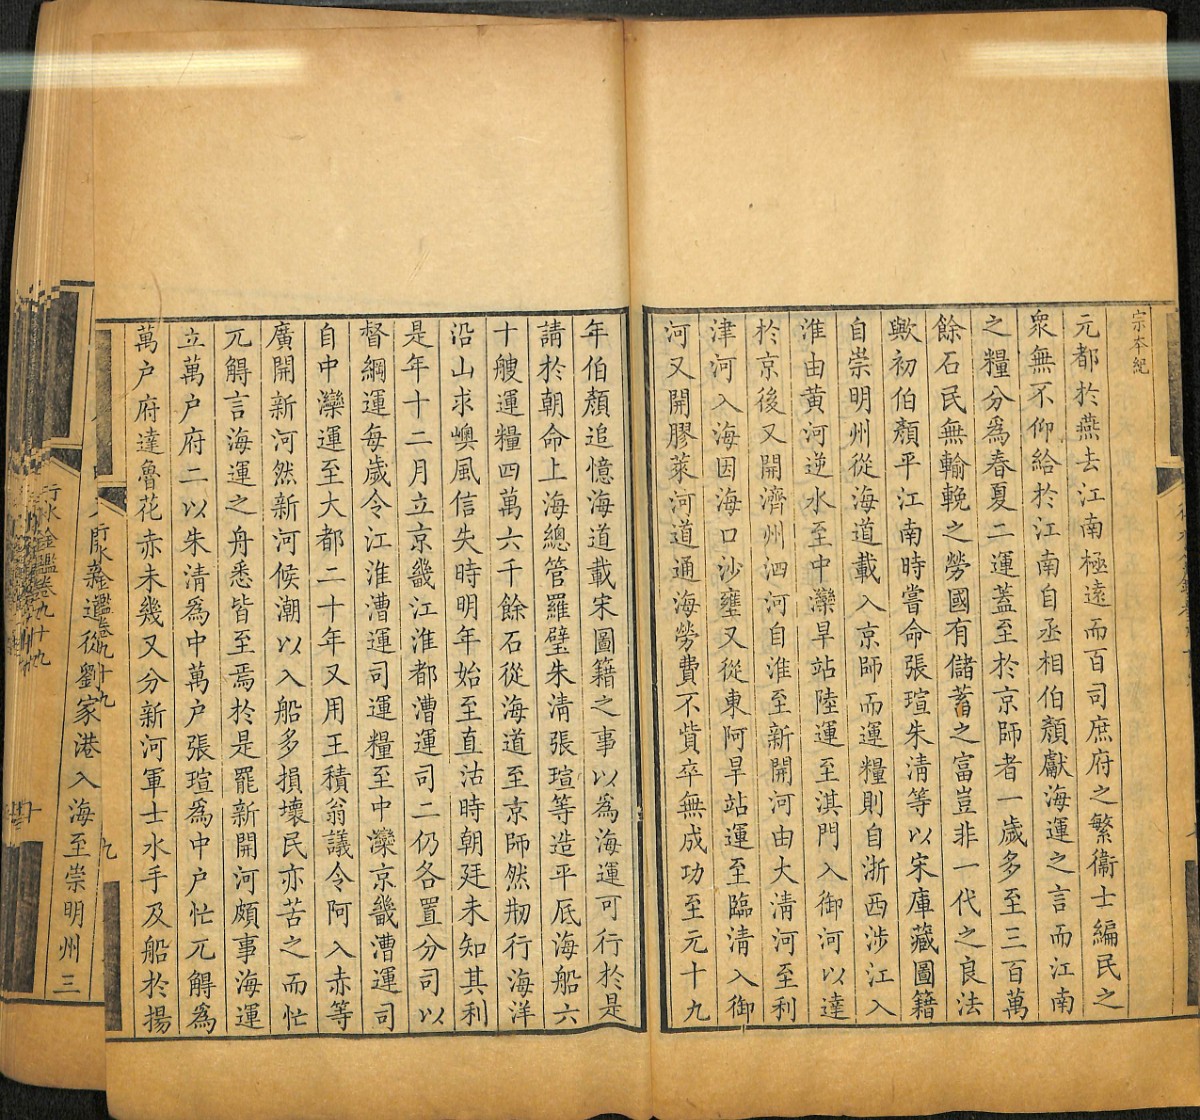 宗本紀
元都於燕去江南極遠而百司庶府之繁衞士編民之
衆無不仰給於江南自丞相伯顏獻海運之言而江南
之糧分爲春夏二運蓋至於京師者一歲多至三百萬
餘石民無輸輓之勞國有儲蓄之富豈非一代之良法
歟初伯顏平江南時嘗命張瑄朱淸等以宋庫藏圖籍
自崇明州從海道載入京師而運糧則自浙西涉江入
淮由黃河逆水至中灤旱站陸運至淇門入御河以達
於京後又開濟州泗河自淮至新開河由大淸河至利
津河入海因海口沙壅又從東阿旱站運至臨淸入御
河又開膠萊河道通海勞費不貲卒無成功至元十九
年伯顏追憶海道載宋圖籍之事以爲海運可行於是
請於朝命上海總管羅璧朱淸張瑄等造平底海船六
十艘運糧四萬六千餘石從海道至京師然刱行海洋
沿山求㠗風信失時明年始至直沽時朝廷未知其利
是年十二月立京畿江淮都漕運司二仍各置分司以
督綱運每歲令江淮漕運司運糧至中灤京畿漕運司
自中灤運至大都二十年又用王積翁議令阿入赤等
廣開新河然新河候潮以入船多損壞民亦苦之而忙
兀䚟言海運之舟悉皆至焉於是罷新開河頗事海運
立萬户府二以朱淸爲中萬户張瑄爲中户忙兀䚟爲
萬户府達魯花赤未幾又分新河軍士水手及船於揚
行水金鑑卷九十九
九
道從劉家港入海至崇明州三
行水金鑑卷九十九